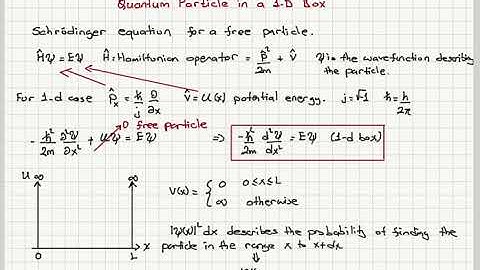 Quantum Particle in a 1-D Box
Schrödinger equation for a free particle.
Ĥψ = Eψ Ĥ: Hamiltonian operator = p̂²/2m + V̂ ψ is the wavefunction describing the particle.
For 1-d case p̂ₓ = ħ/j ∂/∂x V̂ = U(x) potential energy. j = √-1 ħ = h/2π
0 free particle
-ħ²/2m ∂²ψ/∂x² + Uψ = Eψ ⇒ -ħ²/2m d²ψ/dx² = Eψ (1-d box)
U ∞ ∞
V(x) = { 0 0≤x≤L
∞ otherwise
0 L x
|ψ(x)|² dx describes the probability of finding the
particle in the range x to x+dx
⇓